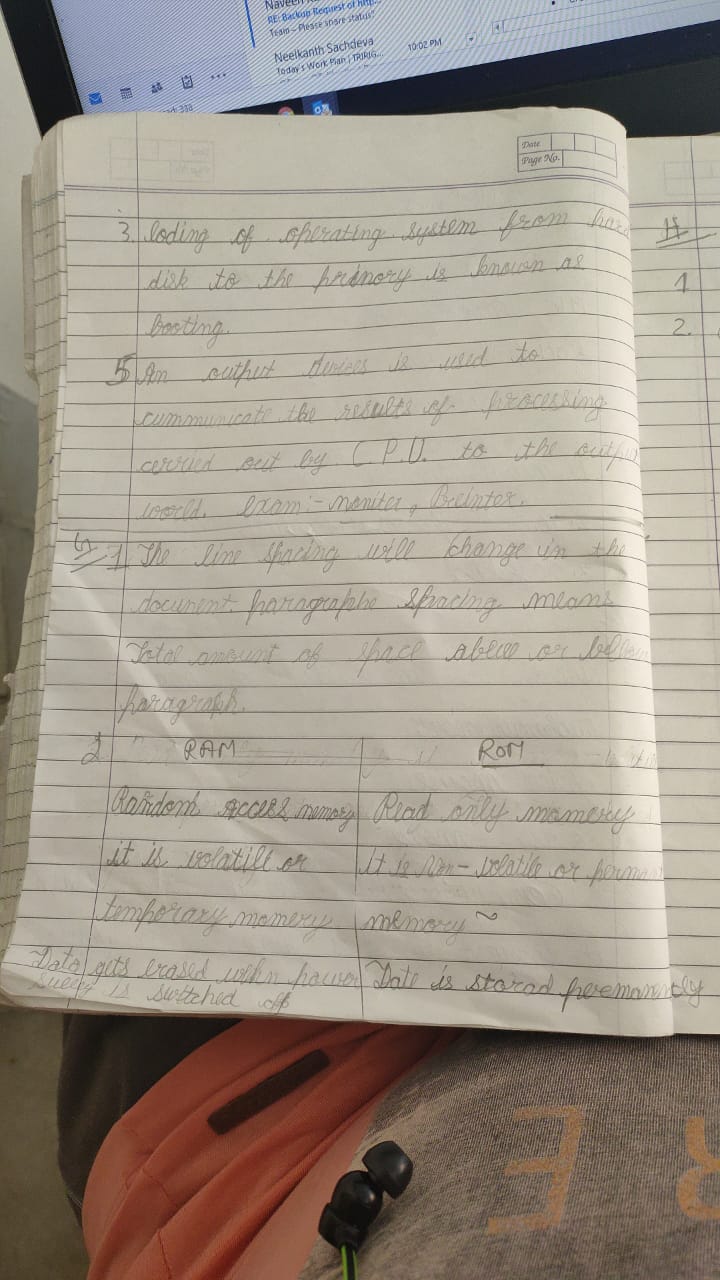 Naveen
RE: Backup Request of http...
Team - Please share status!
Neelkanth Sachdeva
Today's Work Plan | TRIRIG... 10:02 PM
Date
Page No.
3. loding of operating system from hard
disk to the primory is known as
booting.
5 An output devices is used to
cummunicate the results of processing
cerried out by C.P.U. to the output
world. exam:- moniter, Printer.
1. The line spacing will change in the
document paragraphe spacing means
Total amount of space above or bellow
paragraph.
2 RAM ROM
Random access memory Read only momery
it is volatile or it is Non-volatile or perma
temporary momery memory ~
Data gets erased when power Date is storad peremanently
is switched off
1
2.
R
E